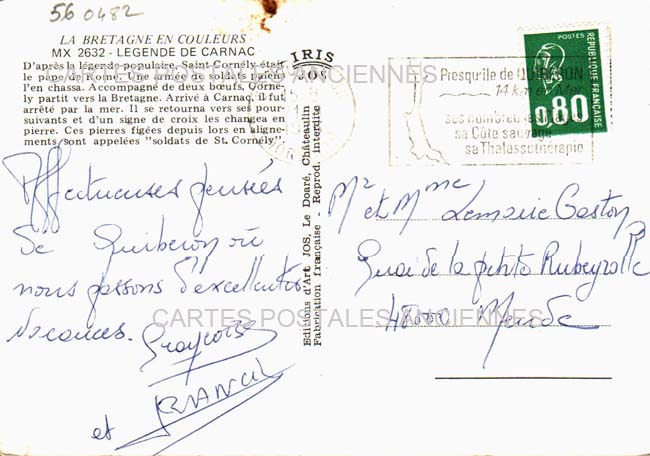 56 0482
LA BRETAGNE EN COULEURS
MX 2632 - LEGENDE DE CARNAC
D'après la légende populaire, Saint-Cornély était
le pape de Rome. Une armée de soldats païens
l'en chassa. Accompagné de deux bœufs, Corné-
ly partit vers la Bretagne. Arrivé à Carnac, il fut
arrêté par la mer. Il se retourna vers ses pour-
suivants et d'un signe de croix les changea en
pierre. Ces pierres figées depuis lors en aligne-
ments sont appelées "soldats de St. Cornély".
IRIS
JOS
Editions d'Art JOS, Le Doaré, Châteaulin
Fabrication française - Reprod. interdite
Presqu'île de QUIBERON
14 km en Mer
ses nombreuses plages
sa Côte sauvage
sa Thalassothérapie
POSTES
REPUBLIQUE FRANÇAISE
0,80
CARTES POSTALES ANCIENNES
Affectueuses pensées
de Quiberon où
nous passons d'excellentes
vacances. Françoise
et FRANCK
Mr et Mme Lemaire Gaston
Quai de la petite Rubeyrolle
48000 Mende
CARTES POSTALES ANCIENNES